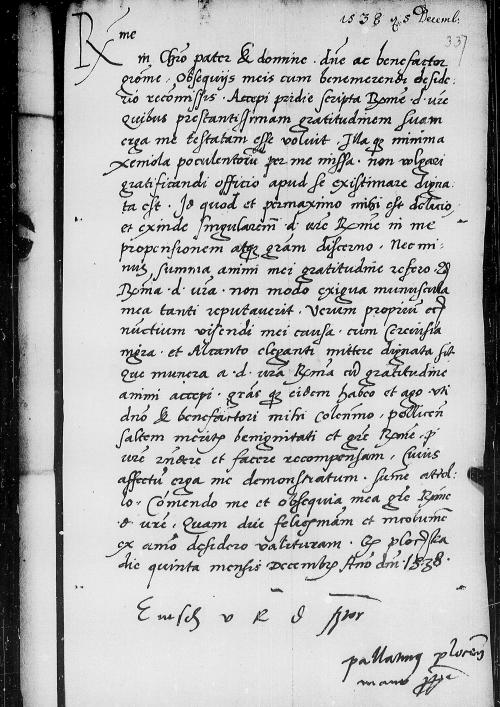 1538 5 Decemb:
337
Rx me
in Chro pater & domine . dne ac benefactor
giome . Obsequijs meis cum benemerendi deside:
rio recomissis . Accepi pridie scripta Rxme . d . vre
quibus prestantissimam gratitudinem suam
erga me testatam esse voluit . Illa q minima
xeniola poculentoru per me missa . non volgari
gratificandi officio apud se existimare digna:
ta est . Id quod et permaximo mihi est
et exinde singularem d vre Rxme in me
propensionem atq gram discerno . Nec mi:
nus summa animi mei gratitudine refero .
Rxma . d . vra . non modo exigua munuscula
mea tanti reputaverit . Verum propriu et
nuctium visendi mei causa . cum Cerevisia
nigra . et Alcanto eleganti mittere dignata sit
que munera a . d . vra Rxma cu gratitudine
animi accepi . gras q eidem habeo et ago . vti
dno & benefactori mihi colenmo . pollicens
saltem meritis benignitati et gre Rxme . p
vre rndere et facere recompensam . Cuius
affectu erga me demonstratum . sume attol:
lo . Comendo me et obsequia mea gre Rxme
d vre . Quam diu felicissmam et incolumem
ex aimo desidero valituram . Ex
die quinta mensis Decembris Ano dni . 1538 .
Eiusde v R d
pallatinus plocen
manu ppa